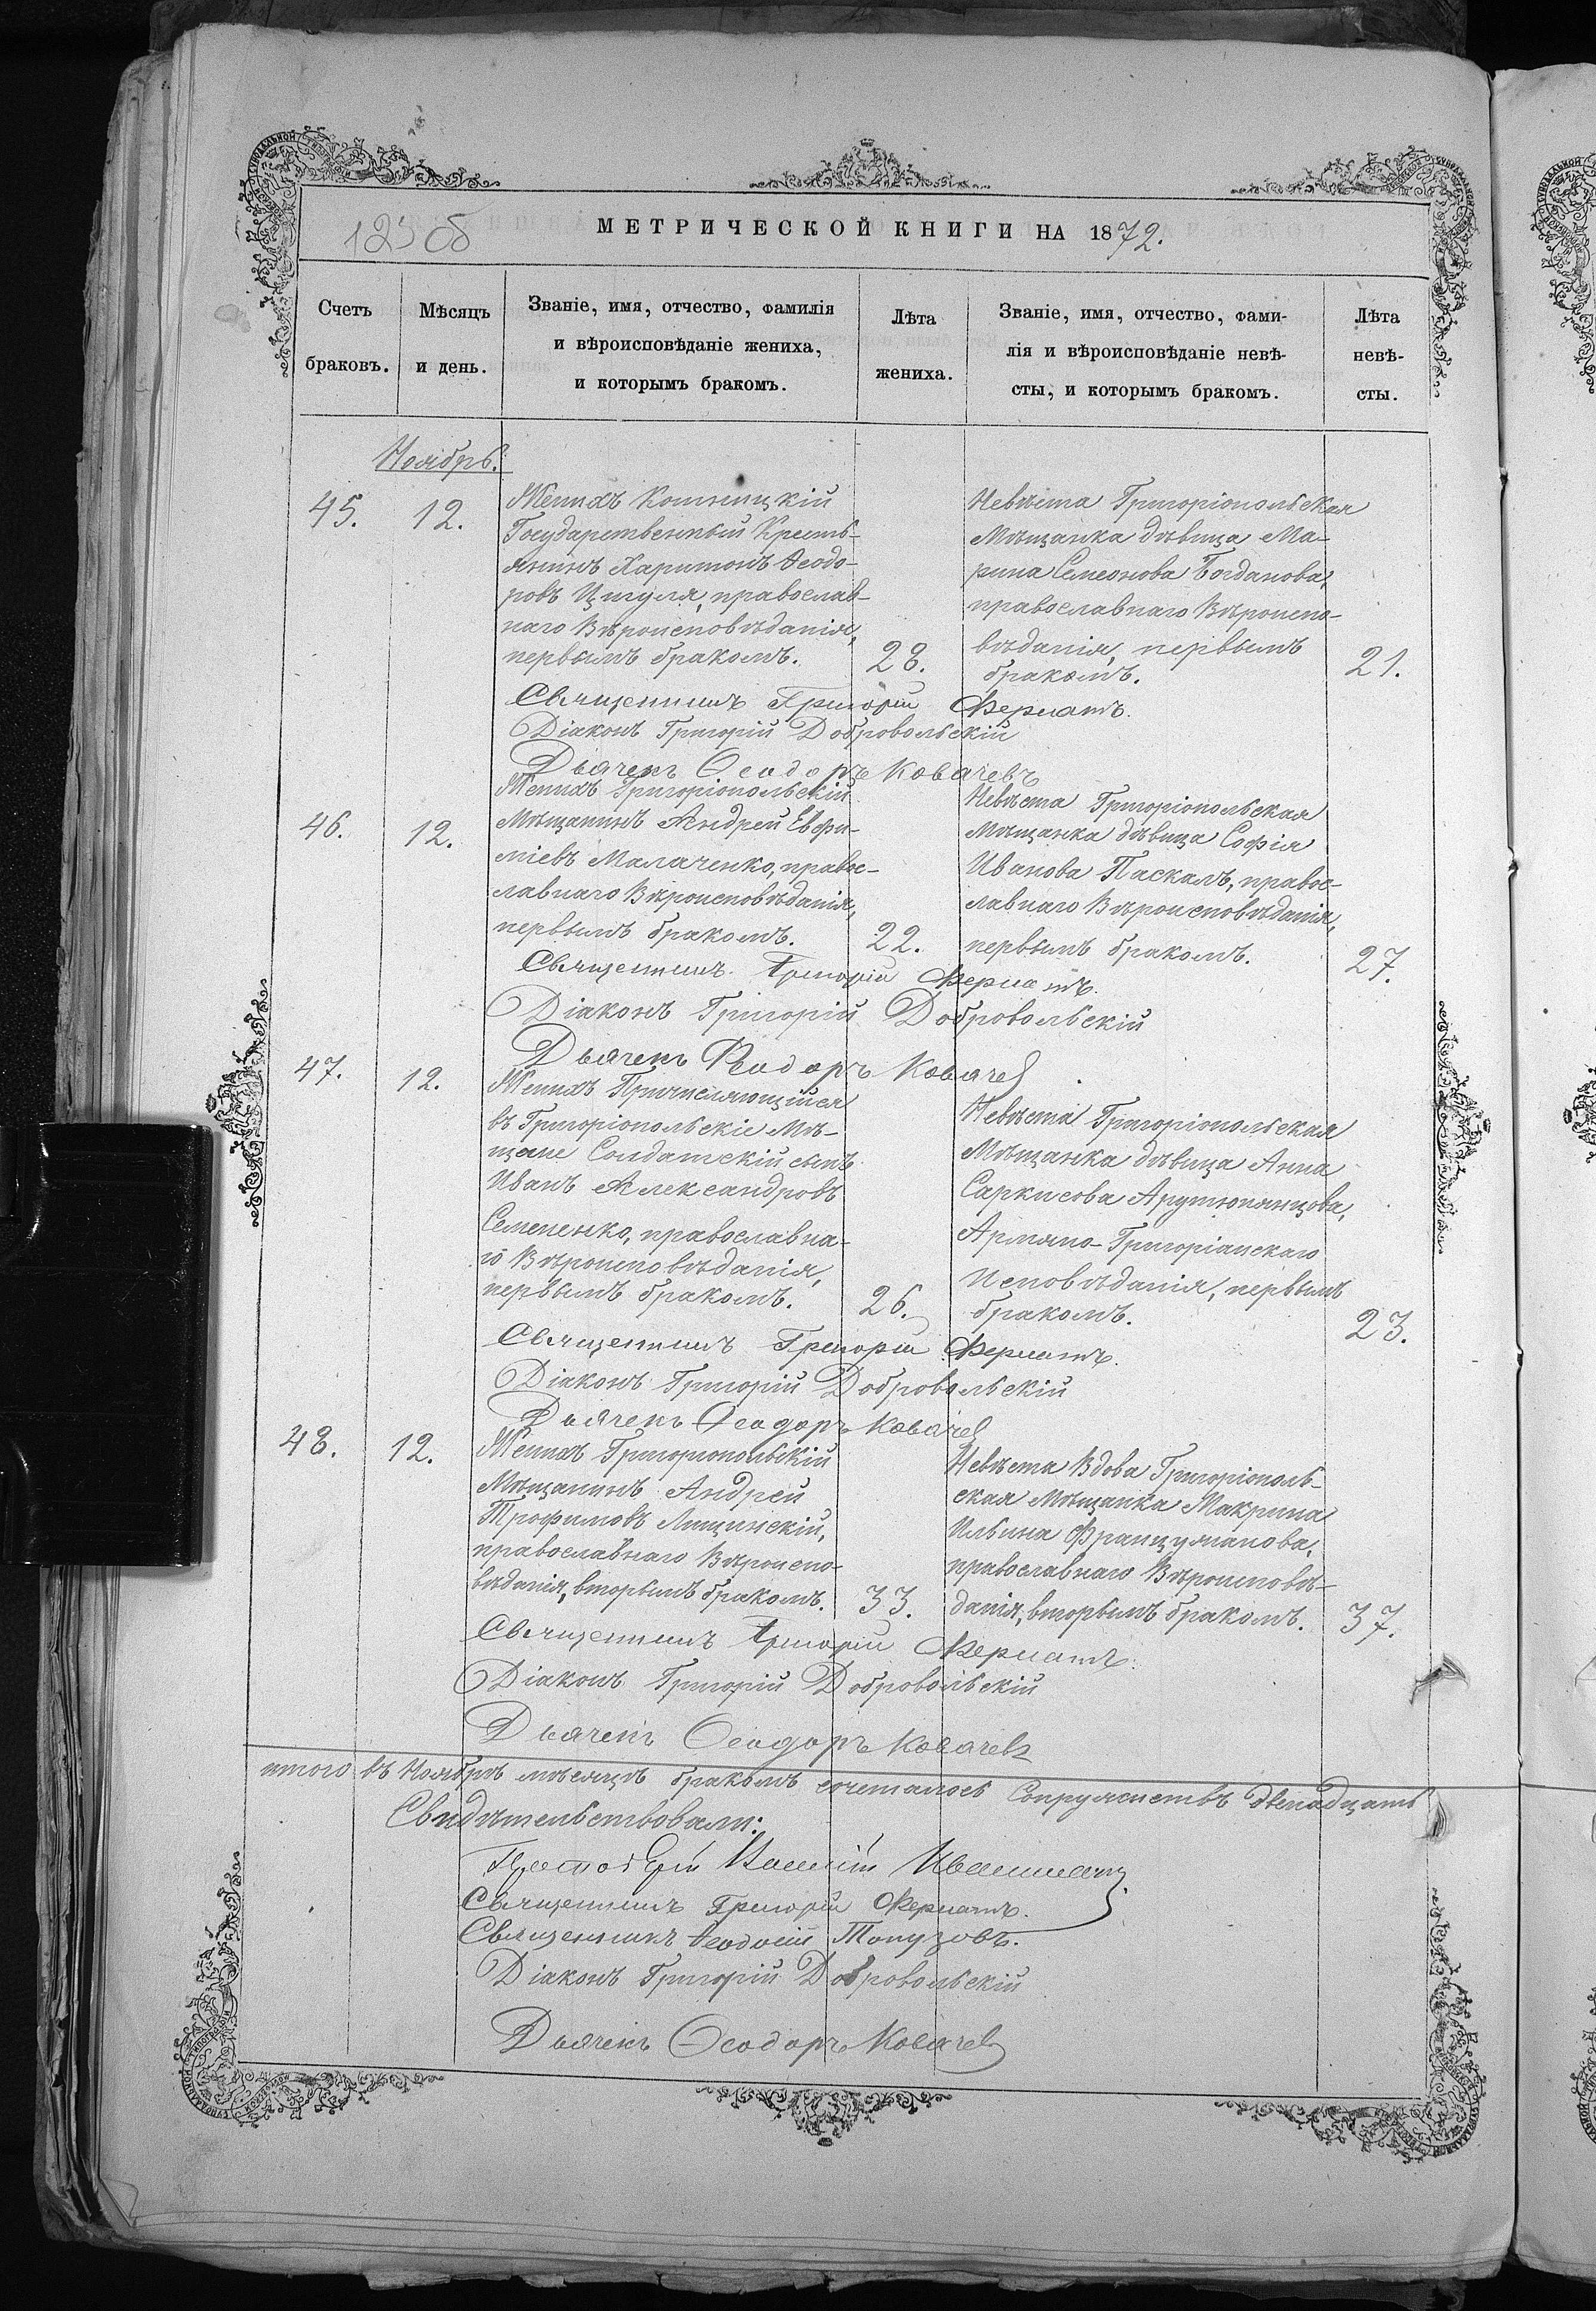 125 об
МЕТРИЧЕСКОЙ КНИГИ НА 1872.
Счетъ браковъ.
Мѣсяцъ и день.
Званіе, имя, отчество, фамилія
и вѣроисповѣданіе жениха,
и которымъ бракомъ.
Лѣта жениха.
Званіе, имя, отчество, фами-
лія и вѣроисповѣданіе невѣ-
сты, и которымъ бракомъ.
Лѣта невѣ-
сты.
Ноябрь.
45. 12.
Женихъ
Государственный Кресть-
янинъ Харитонъ Ѳеодо-
ровъ Цигуля, православ-
наго Вѣроисповѣданія,
первымъ бракомъ. 28.
Невѣста Григоріопольская
Мѣщанка дѣвица Ма-
рина Семеонова Богданова,
православнаго Вѣроиспо-
вѣданія, первымъ
бракомъ. 21.
Священникъ Григорій
Діаконъ Григорій Добровольскій
Дьячекъ Ѳеодоръ Ковачевъ
46. 12.
Женихъ Григоріопольскій
Мѣщанинъ Андрей Евфи-
міевъ Малаченко, правос-
лавнаго Вѣроисповѣданія,
первымъ бракомъ. 22.
Невѣста Григоріопольская
Мѣщанка дѣвица Софія
Иванова Паскалъ, правос-
лавнаго Вѣроисповѣданія,
первымъ бракомъ. 27.
Священникъ Григорій
Діаконъ Григорій Добровольскій
Дьячекъ Ѳеодоръ Ковачев
47. 12.
Женихъ Причисляющійся
въ Григоріопольскіе Мѣ-
щане Солдатскій сынъ
Иванъ Александровъ
Семененко, православна-
го Вѣроисповѣданія,
первымъ бракомъ. 26.
Невѣста Григоріопольская
Мѣщанка дѣвица Анна
Саркисова Арутюнянцова,
Армяно-Григоріанскаго
Исповѣданія, первымъ
бракомъ. 23.
Священникъ Григорій
Діаконъ Григорій Добровольскій
Дьячекъ Ѳеодоръ Ковачев
48. 12.
Женихъ Григоріопольскій
Мѣщанинъ Андрей
Трофимовъ Лищинскій,
православнаго Вѣроиспо-
вѣданія, вторымъ бракомъ. 33.
Невѣста Вдова Григоріополь-
ская Мѣщанка Макрина
Ильина Французманова,
православнаго Вѣроисповѣ-
данія, вторымъ бракомъ. 37.
Священникъ Григорій
Діаконъ Григорій Добровольскій
Дьячекъ Ѳеодоръ Ковачевъ
итого въ Ноябрѣ мѣсяцѣ бракомъ сочеталось Супружествъ двенадцать
Свидѣтельствовали:
Протоіерей Василій
Священникъ Григорій
Священникъ Ѳеодосій Топузовъ.
Діаконъ Григорій Добровольскій
Дьячекъ Ѳеодоръ Ковачев